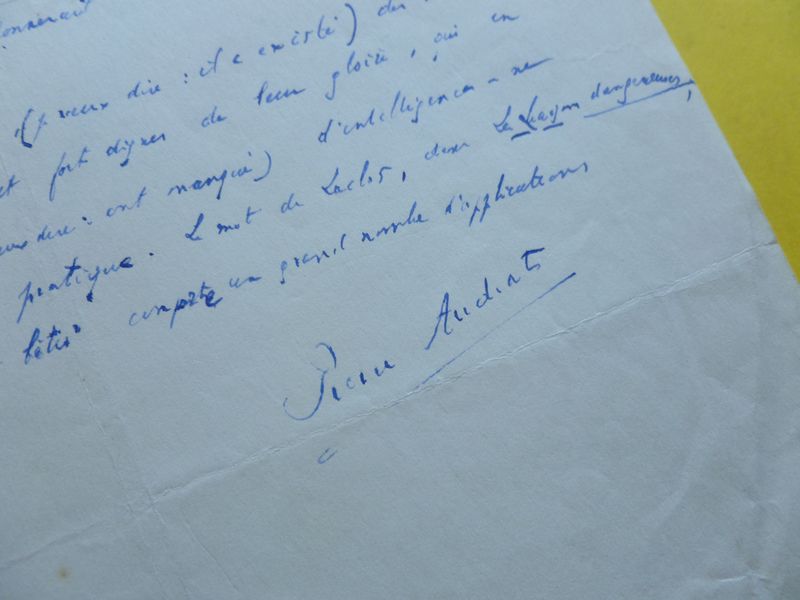 (je veux dire : il a existé) des
et fort dignes de leur gloire, qui en
dire : ont manqué) d'intelligence - ne
pratique. Le mot de Laclos, dans Les Liaisons dangereuses,
bêtise" compte un grand nombre d'applications
Pierre Audiat